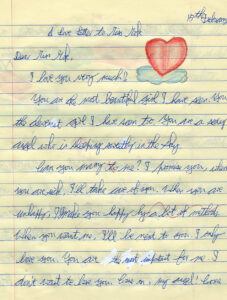 15th February
A love letter to
Dear
I love you very much!
You are the most beautiful girl I have seen. You
the cleverest girl I have seen too. You are a
angel who is sleeping sweetly in the sky.
Can you marry to me? I promise you, when
you are sick, I'll take care of you. When you are
unhappy, I'll make you happy by a lot of methods.
When you want me, I'll be next to you. I only
love you. You are the most important for me. I
don't want to lose you, my angel!